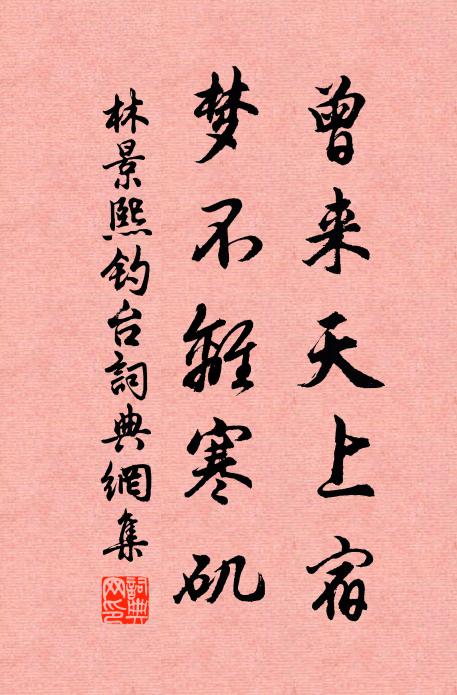 曾来天上宿
梦不離寒矶
林景熙钓台詞典網集
詞典网印